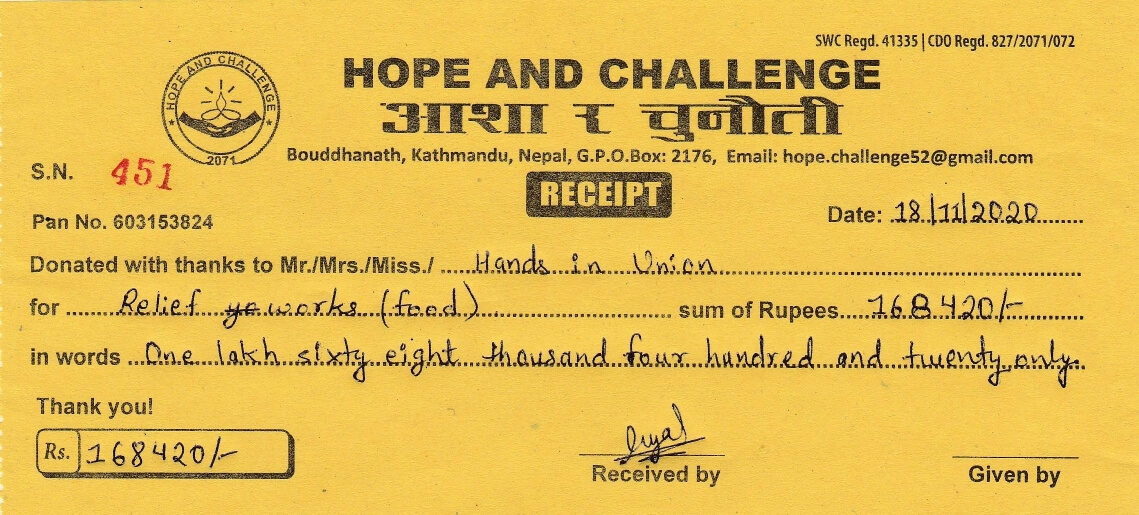 SWC Regd. 41335 | CDO Regd. 827/2071/072
HOPE AND CHALLENGE
HOPE AND CHALLENGE
2071
आशा र चुनौती
Bouddhanath, Kathmandu, Nepal, G.P.O.Box: 2176, Email: hope.challenge52@gmail.com
S.N. 451
RECEIPT
Pan No. 603153824
Date: 18/11/2020
Donated with thanks to Mr./Mrs./Miss./ Hands in Union
for Relief works (food) sum of Rupees 168420/-
in words One lakh sixty eight thousand four hundred and twenty only.
Thank you!
Rs. 168420/-
Received by
Given by